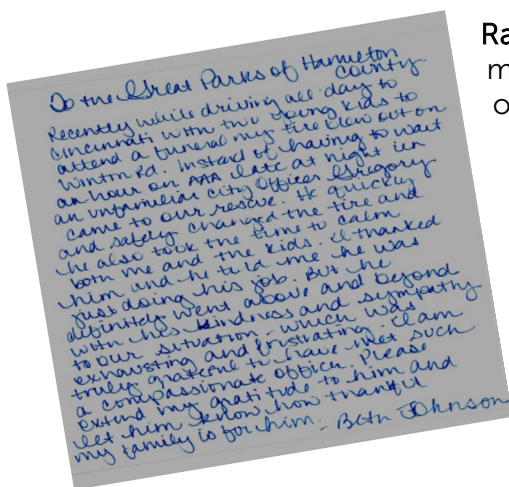 To the Great Parks of Hamilton
County.
Recently while driving all day to
Cincinnati with two young kids to
attend a funeral my tire blew out on
Winton Rd. Instead of having to wait
an hour on AAA late at night in
an unfamiliar city Officer Gregory
came to our rescue. He quickly
and safely changed the tire and
he also took the time to calm
both me and the kids. I thanked
him and he told me he was
just doing his job. But he
definitely went above and beyond
with his kindness and sympathy
to our situation - which was
exhausting and frustrating. I am
truly grateful to have met such
a compassionate officer. Please
extend my gratitude to him and
let him know how thankful
my family is for him. - Beth Johnson
Ra
m
o